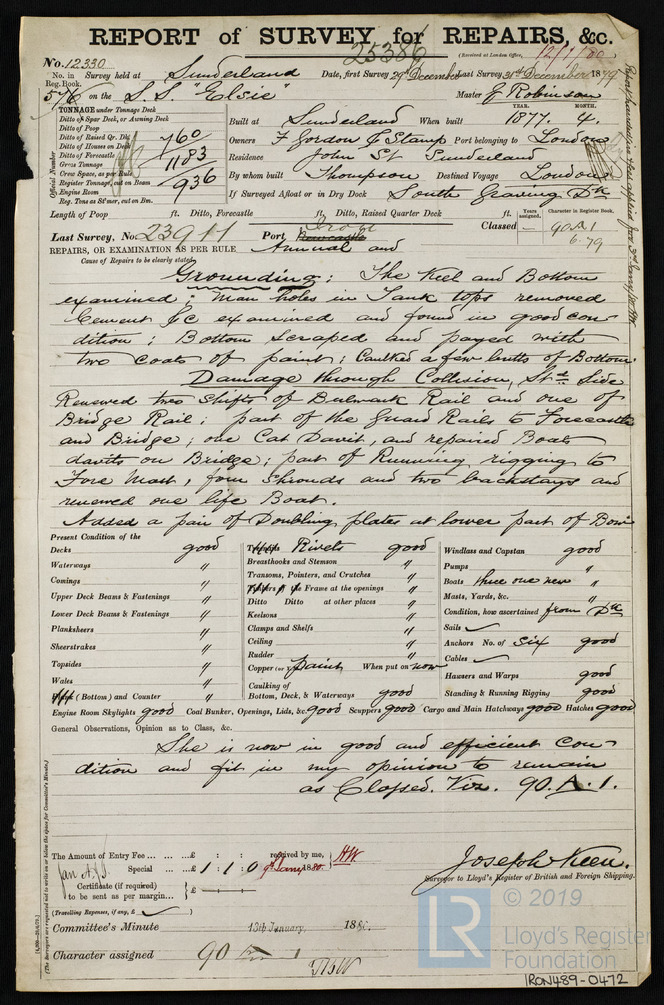 REPORT of SURVEY for REPAIRS, &c.
25386
(Received at London Office, 12/1/80
No. 12330
No. in Reg. Book.
Survey held at Sunderland Date, first Survey 29th December Last Survey 31st December 1879
576 on the S.S. "Elsie" Master J Robinson
TONNAGE under Tonnage Deck
Ditto of Spar Deck, or Awning Deck
Ditto of Poop
Ditto of Raised Qr. Dk.
Ditto of Houses on Deck
Ditto of Forecastle
Gross Tonnage
Crew Space, as per Rule
Register Tonnage, cut on Beam
Engine Room
Reg. Tons as St'mer, cut on Bm.
Official Number
760
1183
936
YEAR. MONTH.
Built at Sunderland When built 1877. 4.
Owners F Gordon & Stamp Port belonging to London
Residence John St Sunderland
By whom built Thompson Destined Voyage London
If Surveyed Afloat or in Dry Dock South Graving Dk
Length of Poop ft. Ditto, Forecastle ft. Ditto, Raised Quarter Deck ft.
Years assigned. Character in Register Book,
Classed — 90A1
6.79
Last Survey, No. 23911 Port
REPAIRS, OR EXAMINATION AS PER RULE Annual and
Cause of Repairs to be clearly stated
Grounding: The Keel and Bottom
examined: Man holes in Tank tops removed
Cement &c examined and found in good con-
dition; Bottom scraped and payed with
two coats of paint; Caulked a few butts of Bottom.
Damage through Collision, Std Side
Renewed two shifts of Bulwark Rail and one of
Bridge Rail; part of the Guard Rails to Forecastle
and Bridge; one Cat Davit, and repaired Boats
davits on Bridge; part of Running rigging to
Fore Mast, four shrouds and two backstays and
renewed one life Boat.
Added a pair of Doubling plates at lower part of Bow
Present Condition of the
Decks good
Waterways "
Comings "
Upper Deck Beams & Fastenings "
Lower Deck Beams & Fastenings "
Planksheers "
Sheerstrakes "
Topsides "
Wales "
(Bottom) and Counter "
Rivets good
Breasthooks and Stemson "
Transoms, Pointers, and Crutches "
the Frame at the openings "
Ditto Ditto at other places "
Keelsons "
Clamps and Shelfs "
Ceiling "
Rudder "
Copper (or Paint When put on now
Caulking of Bottom, Deck, & Waterways good
Windlass and Capstan good
Pumps "
Boats three one new "
Masts, Yards, &c. "
Condition, how ascertained from Dk
Sails
Anchors No. of Six good
Cables
Hawsers and Warps good
Standing & Running Rigging good
Engine Room Skylights good Coal Bunker, Openings, Lids, &c. good Scuppers good Cargo and Main Hatchways good Hatches good
General Observations, Opinion as to Class, &c.
She is now in good and efficient con-
dition and fit in my opinion to remain
as Classed. Viz. 90.A.1.
The Amount of Entry Fee ... ... ... £ : : received by me, HW
Special ... ... £ 1 : 1 : 0 9th Jany 1880
Certificate (if required) to be sent as per margin... £
(Travelling Expenses, if any, £
Joseph Keen.
Surveyor to Lloyd's Register of British and Foreign Shipping.
Committee's Minute 13th January 188
Character assigned 90 A 1
(The Surveyors are requested not to write on or below the space for Committee's Minute.)
© 2019
LR
Lloyd's Register
Foundation
IRON489-0472